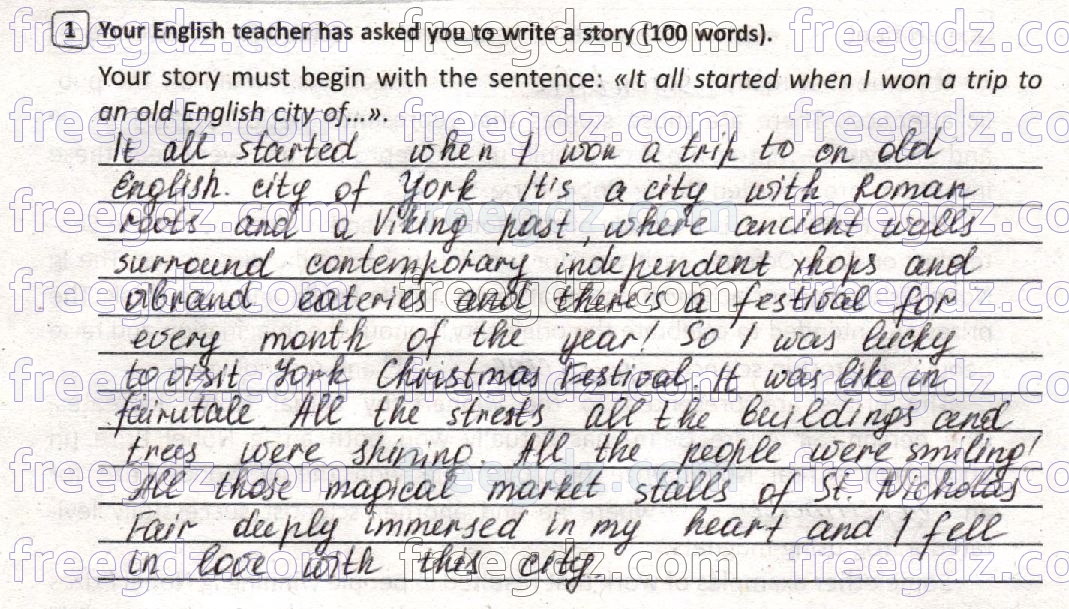 1 Your English teacher has asked you to write a story (100 words).
Your story must begin with the sentence: «It all started when I won a trip to
an old English city of...».
It all started when I won a trip to on old
English. city of York It's a city with Roman
roots and a Viking past, where ancient walls
surround contemporary independent shops and
vibrand eateries and there's a festival for
every month of the year! So I was lucky
to visit York Christmas Festival. It was like in
fairutale. All the strests all the buildings and
trees were shining. All the people were smiling!
All those magical market stalls of St. Nicholas
Fair deeply immersed in my heart and I fell
in love with this city.
freegdz.com